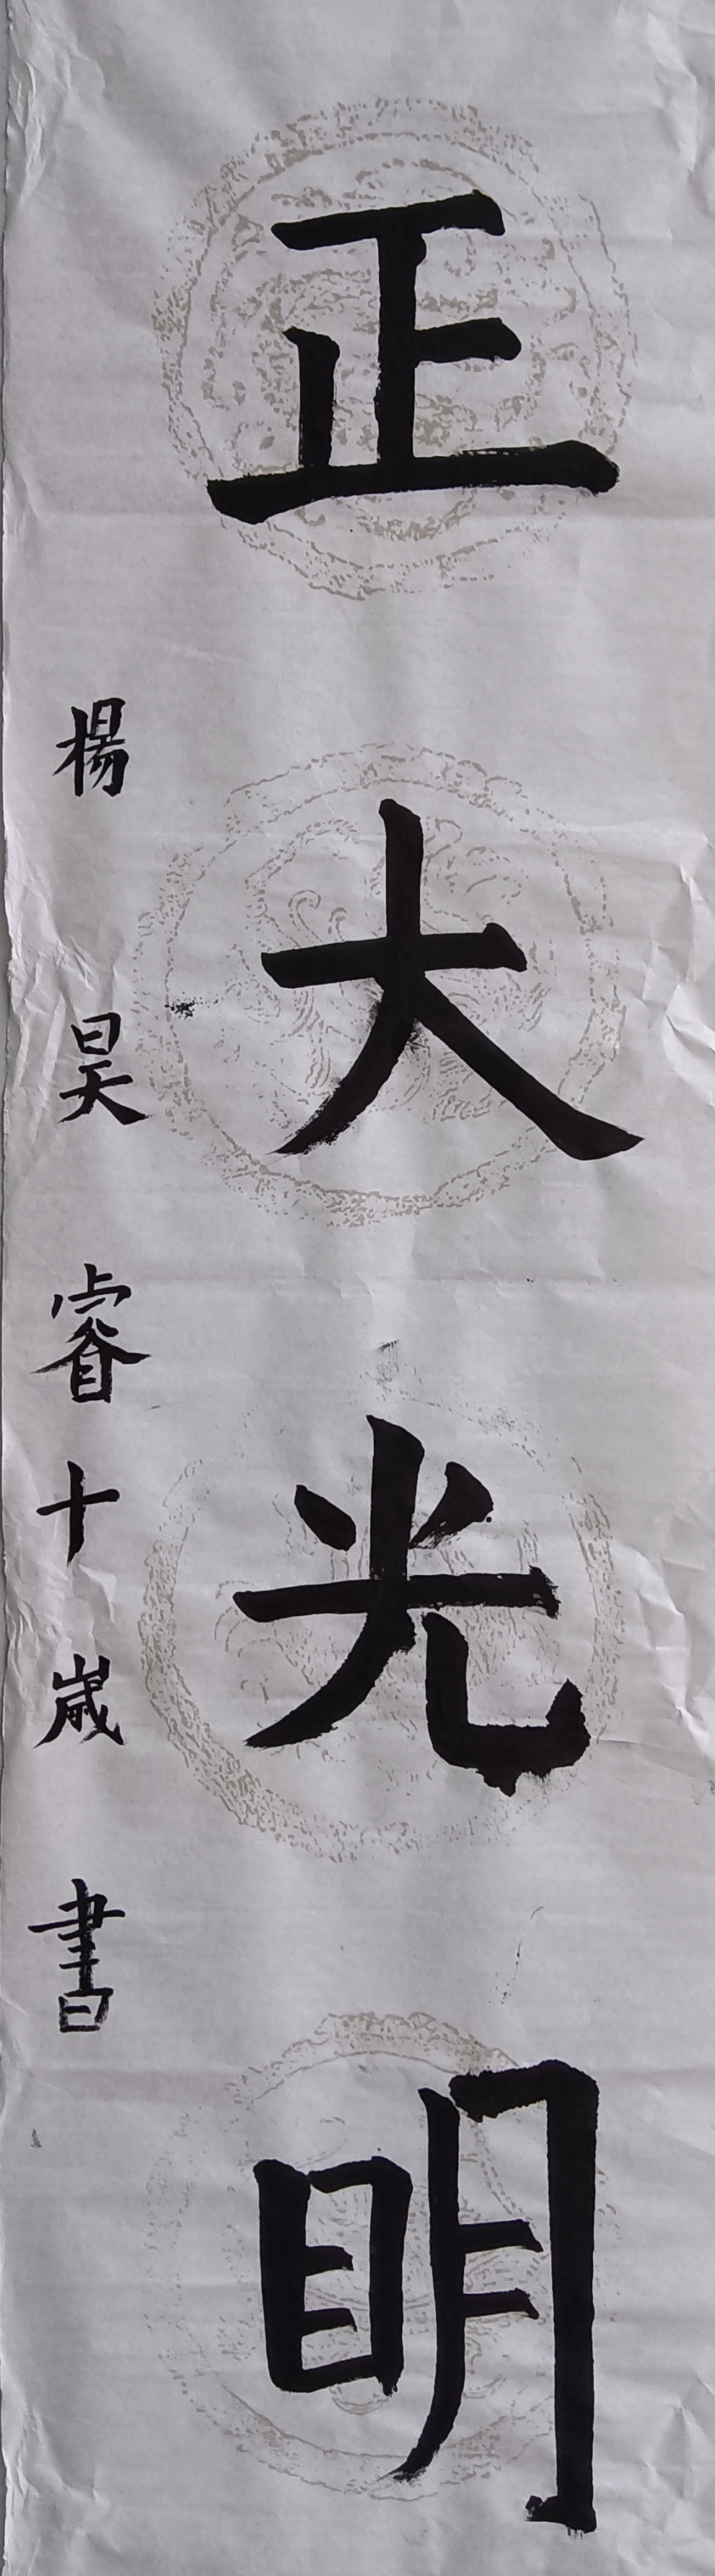 正大光明
楊昊睿十歲書